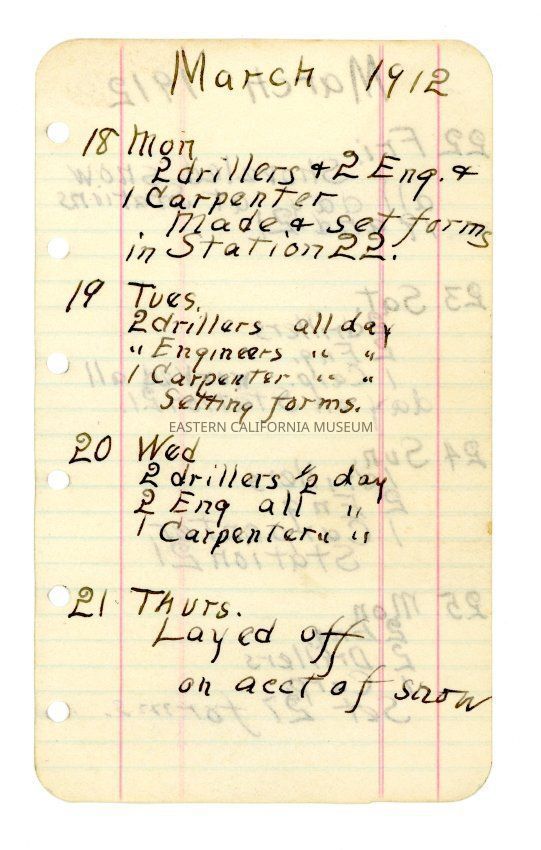 March 1912
18 Mon
2 drillers & 2 Eng. &
1 Carpenter
Made & set forms
in Station 22.
19 Tues.
2 drillers all day
" Engineers " "
1 Carpenter " "
Setting forms.
EASTERN CALIFORNIA MUSEUM
20 Wed
2 drillers 1/2 day
2 Eng all "
1 Carpenter " "
21 Thurs.
Layed off
on acct of snow